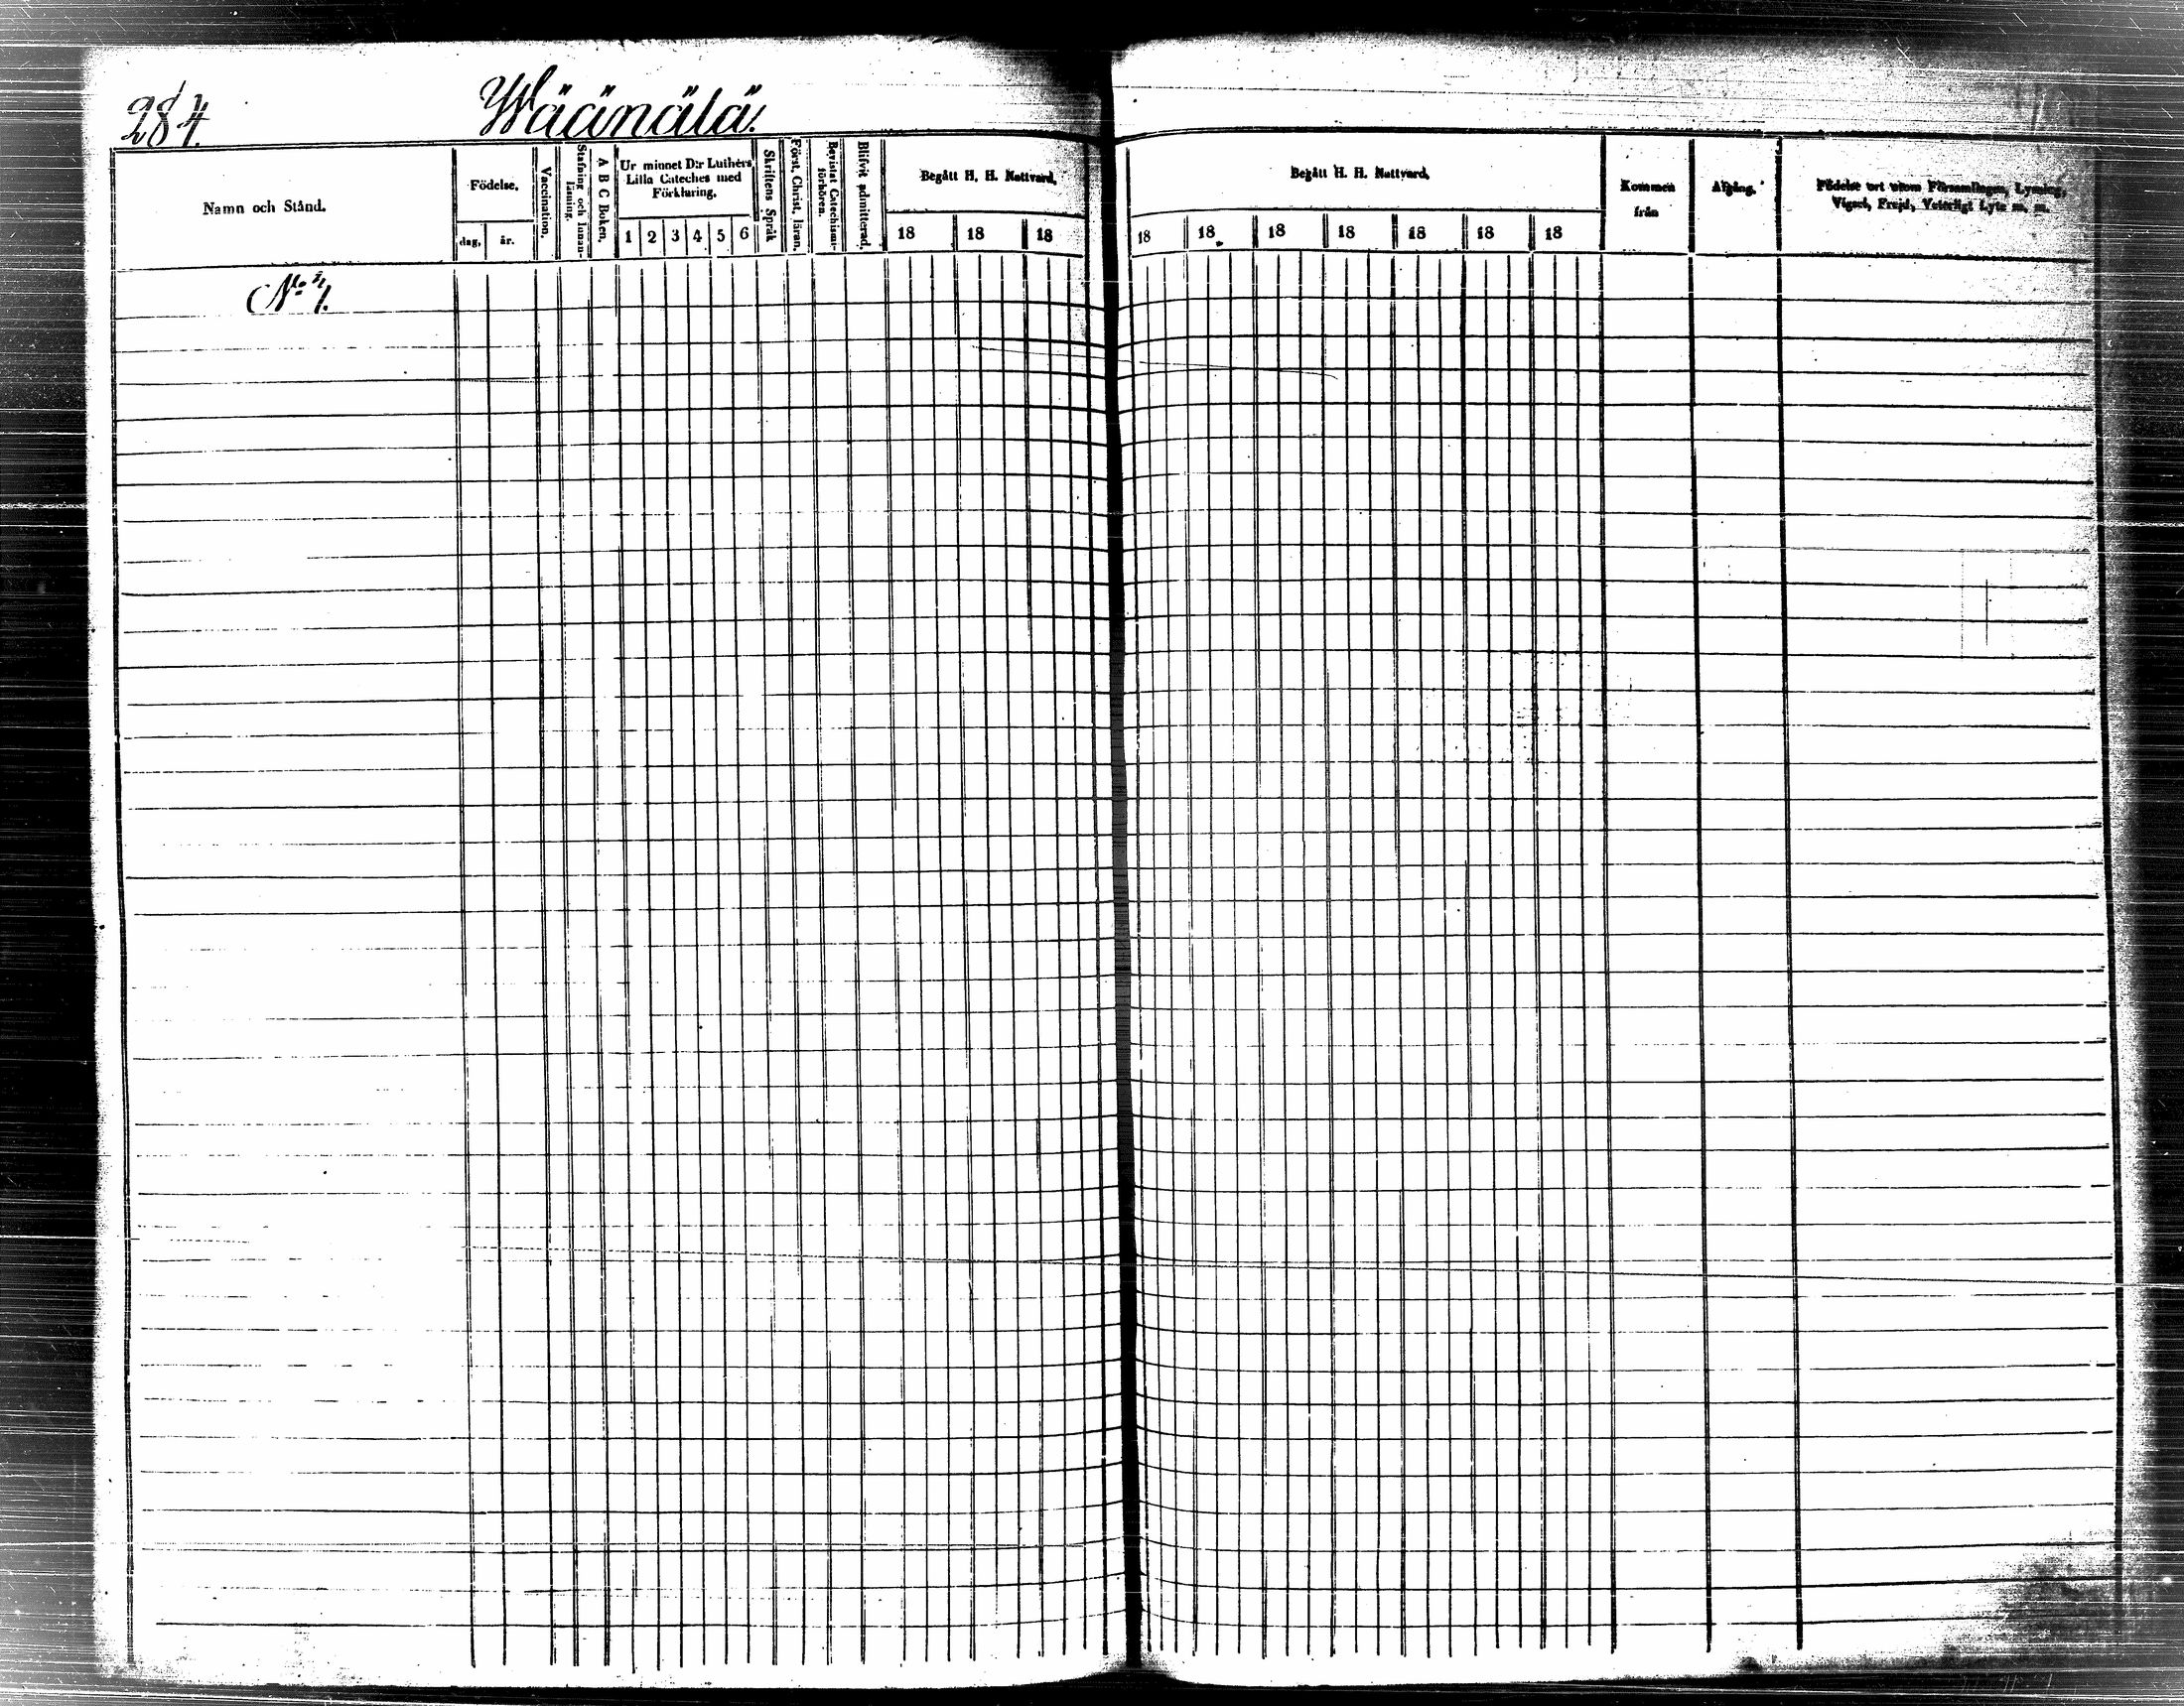 284.
Wäänälä.
Namn och Stånd.
Födelse.
dag, år.
Vaccination.
Stafning och Innan-
läsning.
A B C Boken.
Ur minnet D:r Luthers
Lilla Cateches med
Förklaring.
1 2 3 4 5 6
Skriftens Språk
Först. Christ. läran.
Bevistat Catechismi-
förhören.
Blifvit admitterad.
Begått H. H. Nattvard.
18 18 18
Begått H. H. Nattvard.
18 18 18 18 18 18 18
Kommen
från
Afgång.
Födelse ort utom Församlingen, Lysning,
Vigsel, Frejd, Veterligt Lyte m. m.